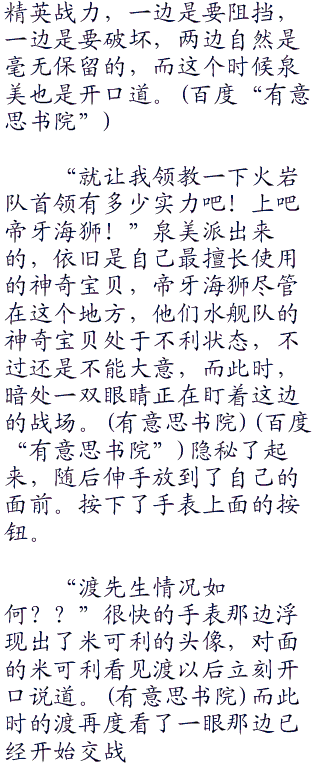 精英战力，一边是要阻挡，
一边是要破坏，两边自然是
毫无保留的，而这个时候泉
美也是开口道。(百度“有意
思书院”)
“就让我领教一下火岩
队首领有多少实力吧！上吧
帝牙海狮！”泉美派出来
的，依旧是自己最擅长使用
的神奇宝贝，帝牙海狮尽管
在这个地方，他们水舰队的
神奇宝贝处于不利状态，不
过还是不能大意，而此时，
暗处一双眼睛正在盯着这边
的战场。(有意思书院)(百度
“有意思书院”)隐秘了起
来，随后伸手放到了自己的
面前。按下了手表上面的按
钮。
“渡先生情况如
何？？”很快的手表那边浮
现出了米可利的头像，对面
的米可利看见渡以后立刻开
口说道。(有意思书院)而此
时的渡再度看了一眼那边已
经开始交战